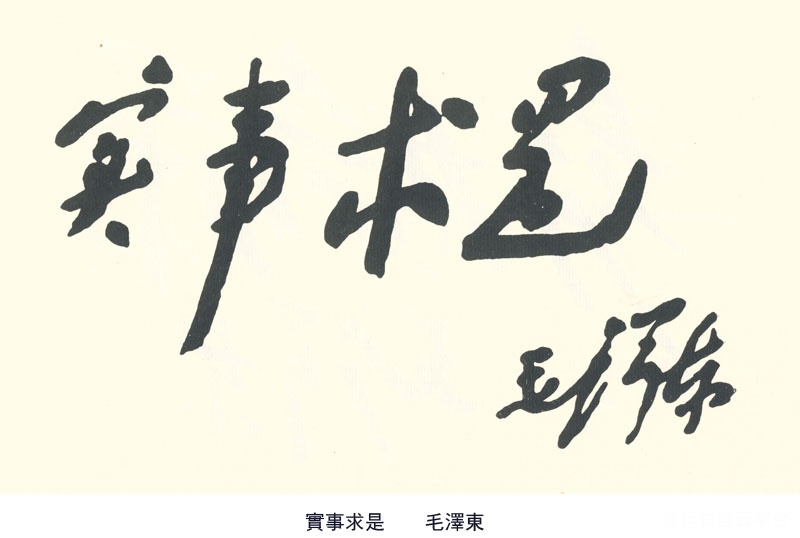 实事求是
毛泽东
實事求是 毛澤東